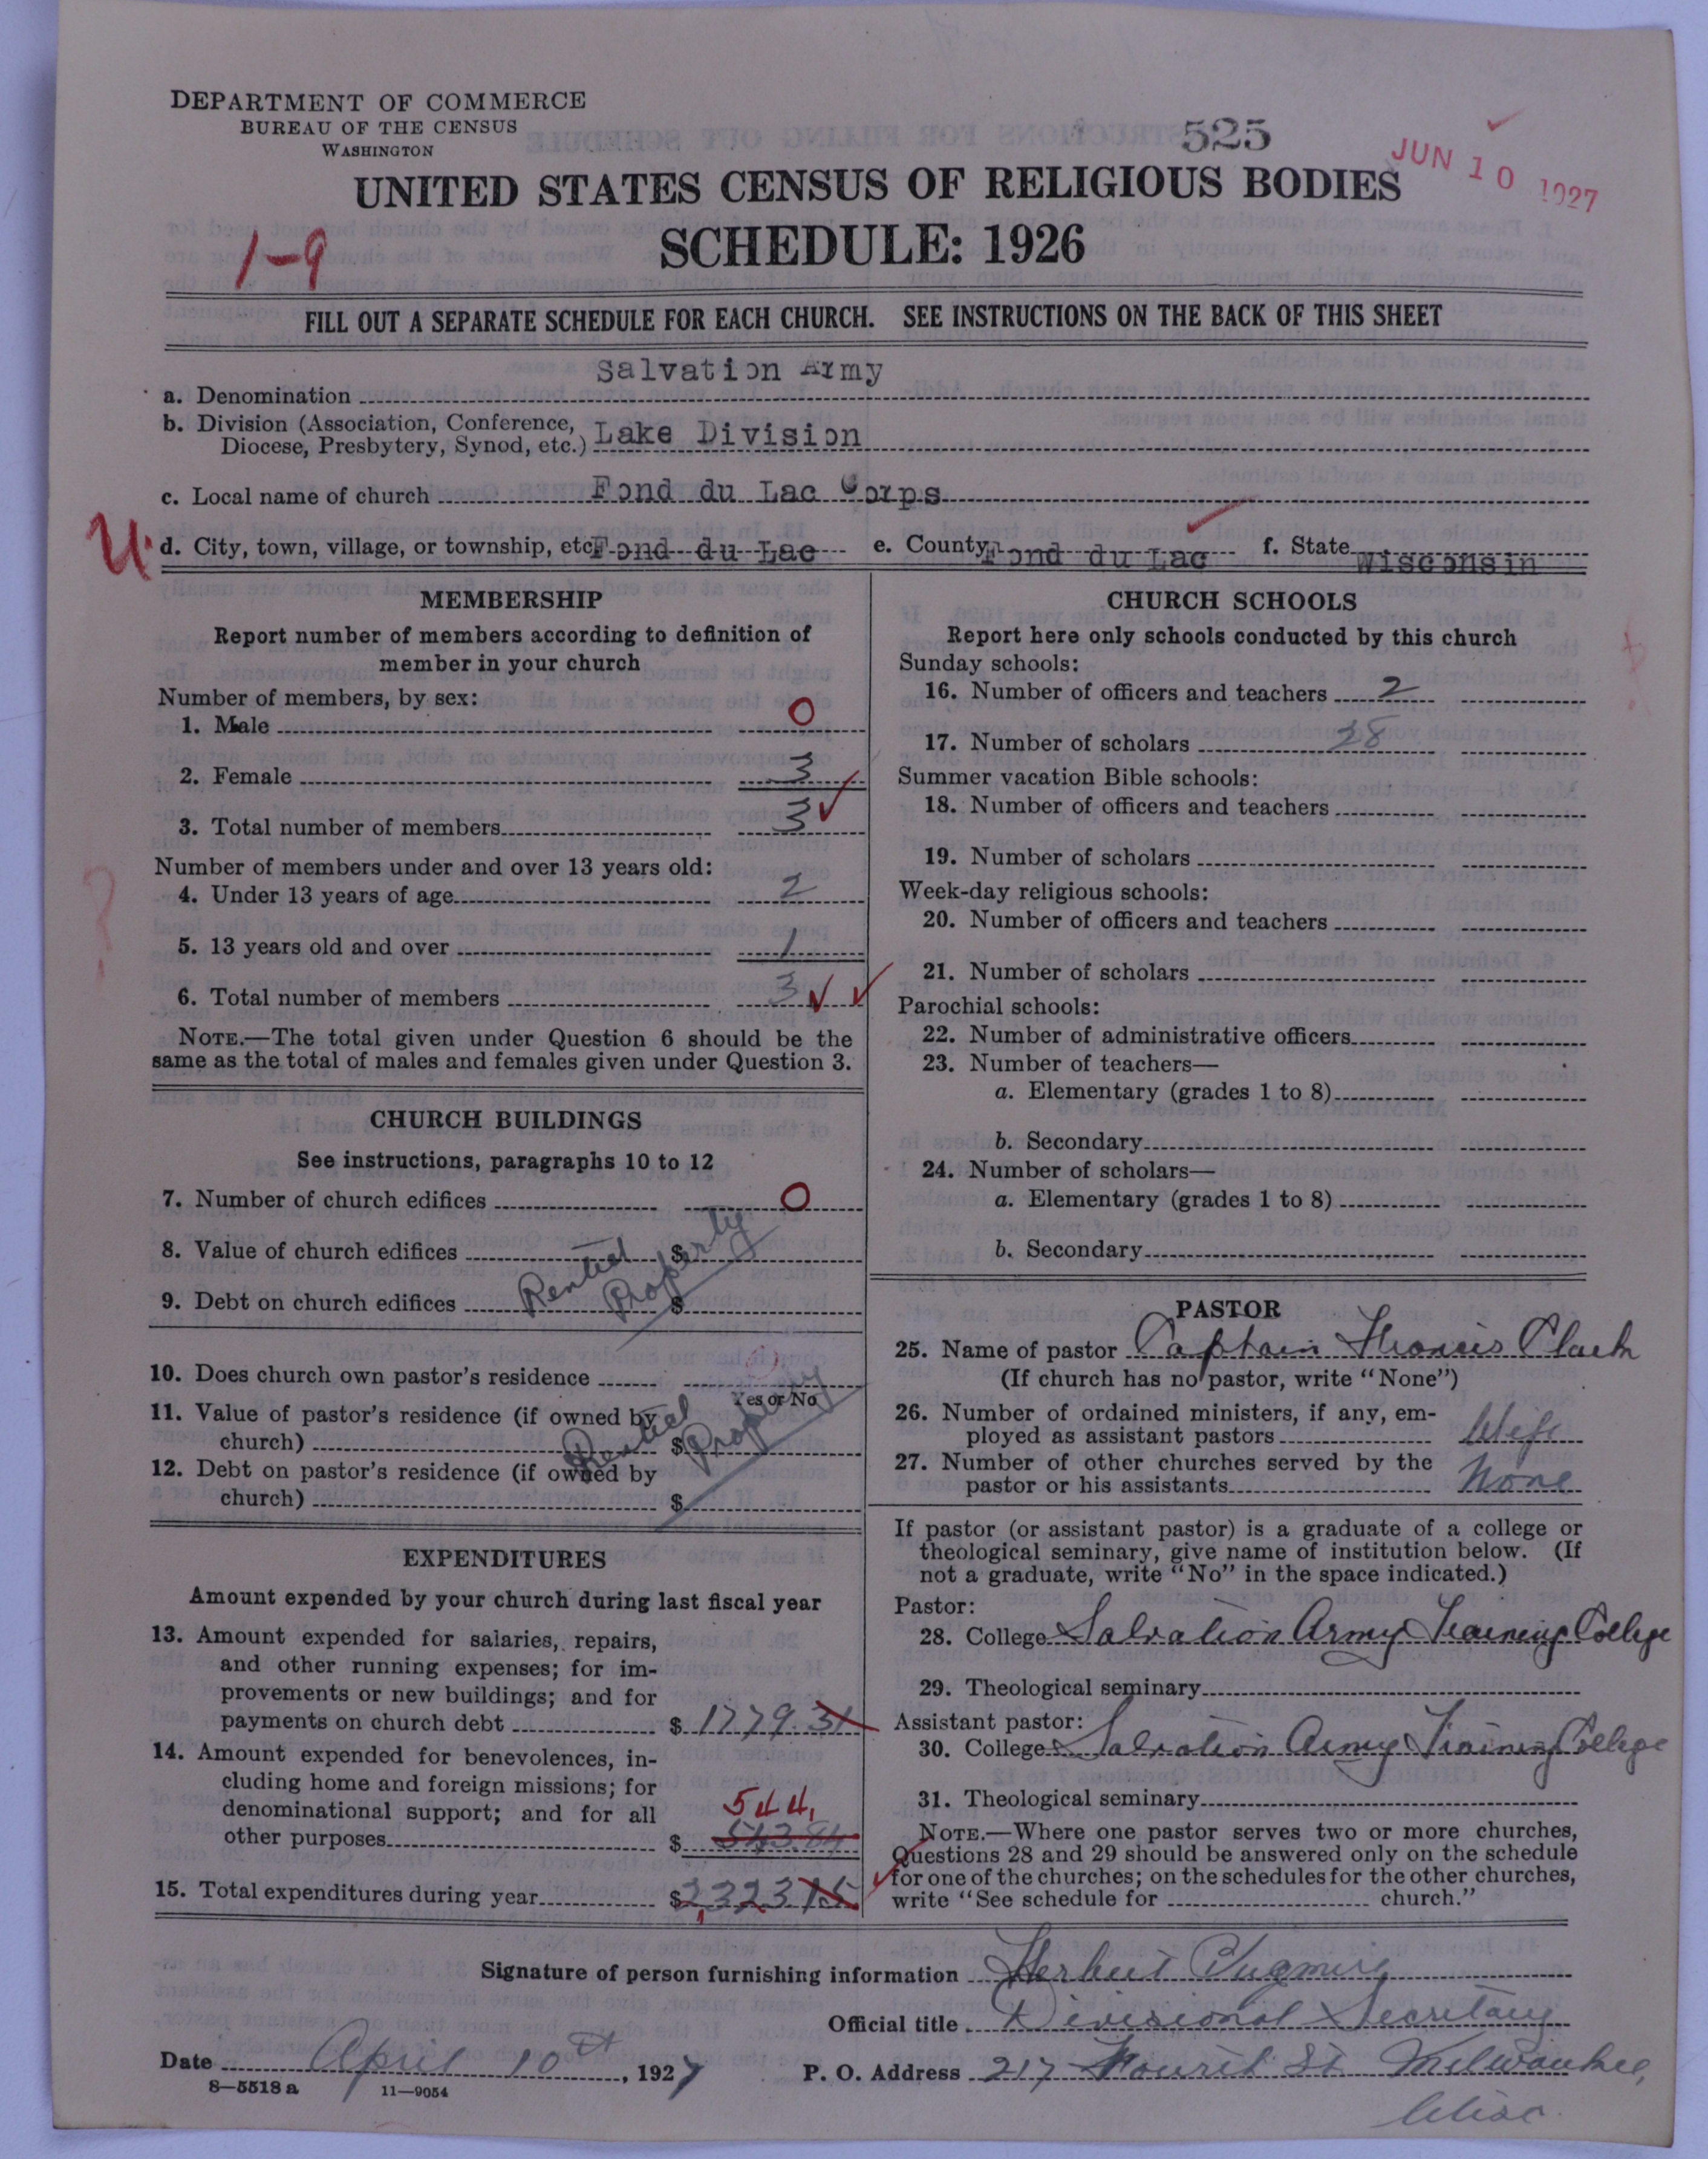 DEPARTMENT OF COMMERCE
BUREAU OF THE CENSUS
WASHINGTON
525
JUN 10 1927
UNITED STATES CENSUS OF RELIGIOUS BODIES
SCHEDULE: 1926
1-9
FILL OUT A SEPARATE SCHEDULE FOR EACH CHURCH. SEE INSTRUCTIONS ON THE BACK OF THIS SHEET
a. Denomination Salvation Army
b. Division (Association, Conference,
Diocese, Presbytery, Synod, etc.) Lake Division
c. Local name of church Fond du Lac Corps
U d. City, town, village, or township, etc. Fond du Lac e. County Fond du Lac f. State Wisconsin
MEMBERSHIP
Report number of members according to definition of
member in your church
Number of members, by sex:
1. Male 0
2. Female 3
3. Total number of members 3
Number of members under and over 13 years old:
4. Under 13 years of age 2
5. 13 years old and over 1
6. Total number of members 3
NOTE.—The total given under Question 6 should be the
same as the total of males and females given under Question 3.
CHURCH BUILDINGS
See instructions, paragraphs 10 to 12
7. Number of church edifices 0
8. Value of church edifices $
Rented Property
9. Debt on church edifices $
10. Does church own pastor's residence
Yes or No
11. Value of pastor's residence (if owned by
church) $
Rented Property
12. Debt on pastor's residence (if owned by
church) $
EXPENDITURES
Amount expended by your church during last fiscal year
13. Amount expended for salaries, repairs,
and other running expenses; for im-
provements or new buildings; and for
payments on church debt $ 1779.31
14. Amount expended for benevolences, in-
cluding home and foreign missions; for
denominational support; and for all
544.
other purposes $ 543.84
15. Total expenditures during year $ 2323 15
CHURCH SCHOOLS
Report here only schools conducted by this church
Sunday schools:
16. Number of officers and teachers 2
17. Number of scholars 28
Summer vacation Bible schools:
18. Number of officers and teachers
19. Number of scholars
Week-day religious schools:
20. Number of officers and teachers
21. Number of scholars
Parochial schools:
22. Number of administrative officers
23. Number of teachers—
a. Elementary (grades 1 to 8)
b. Secondary
24. Number of scholars—
a. Elementary (grades 1 to 8)
b. Secondary
PASTOR
25. Name of pastor Captain Francis Clark
(If church has no pastor, write "None")
26. Number of ordained ministers, if any, em-
ployed as assistant pastors Wife
27. Number of other churches served by the
pastor or his assistants None
If pastor (or assistant pastor) is a graduate of a college or
theological seminary, give name of institution below. (If
not a graduate, write "No" in the space indicated.)
Pastor:
28. College Salvation Army Training College
29. Theological seminary
Assistant pastor:
30. College Salvation Army Training College
31. Theological seminary
NOTE.—Where one pastor serves two or more churches,
Questions 28 and 29 should be answered only on the schedule
for one of the churches; on the schedules for the other churches,
write "See schedule for church."
Signature of person furnishing information Herbert Pugmire
Official title Divisional Secretary
Date April 10th, 1927 P. O. Address 217 Fourth St Milwaukee,
Wisc.
8—5518 a 11—9054